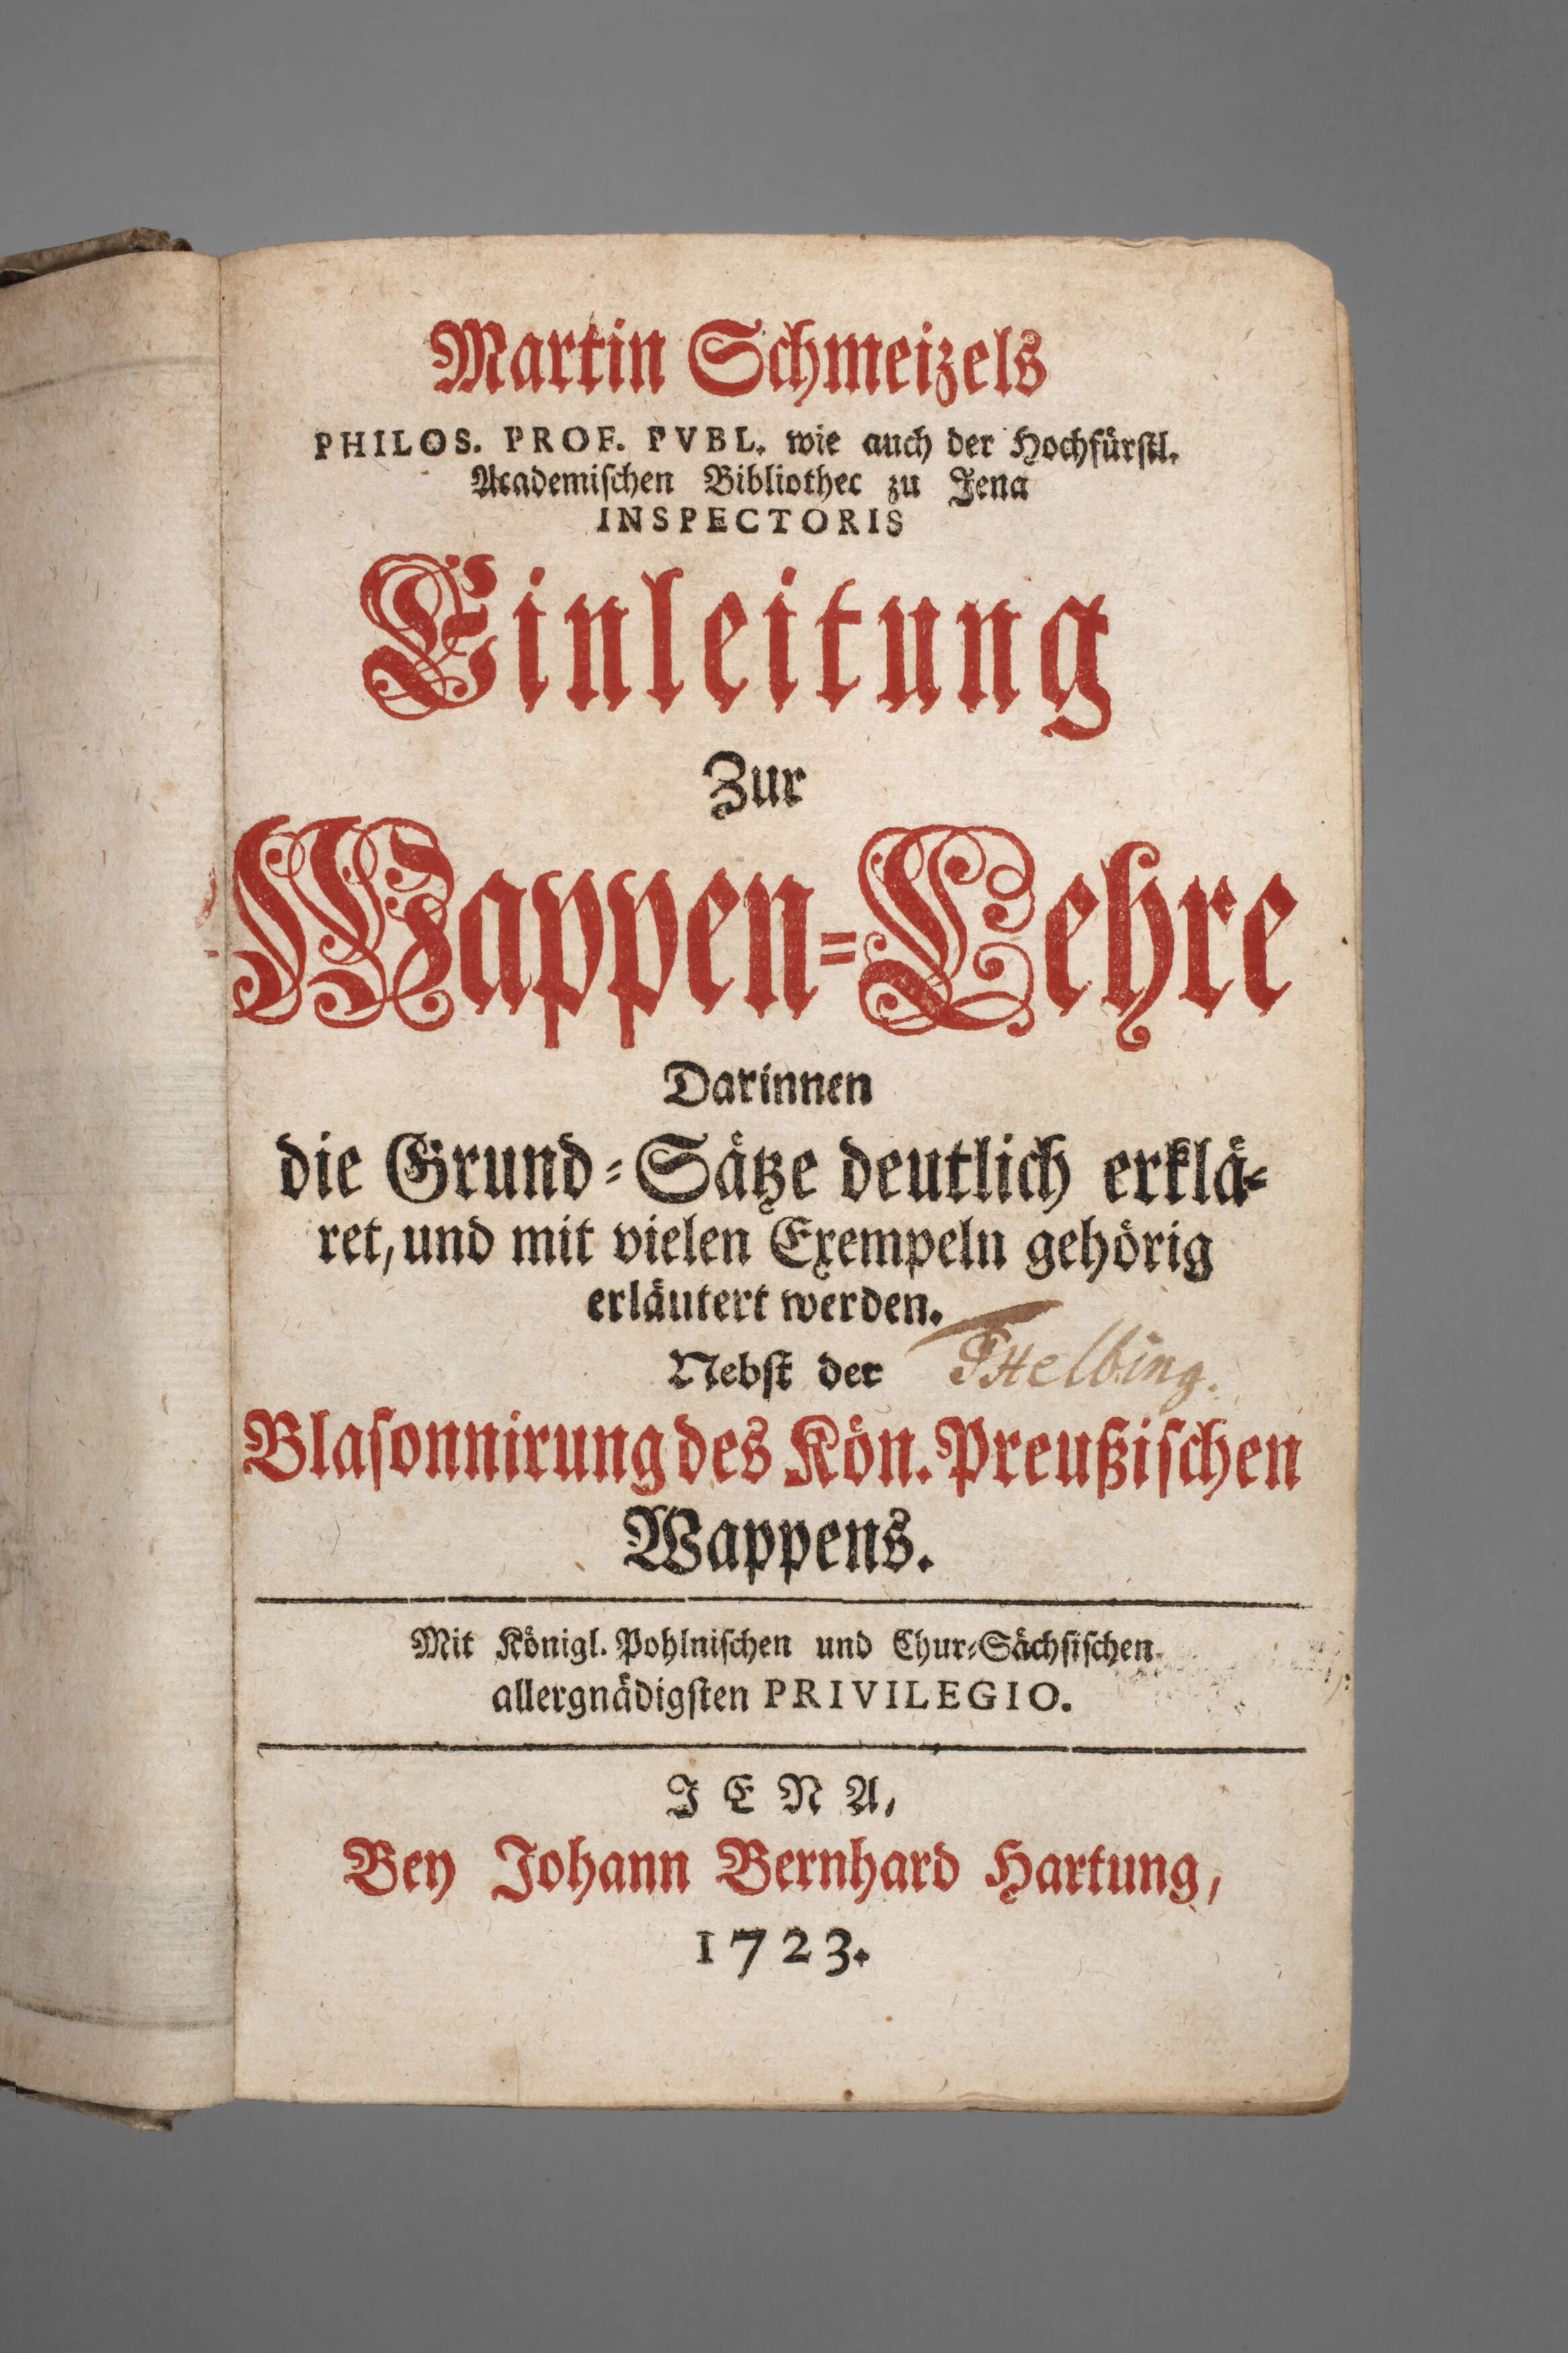 Martin Schmeizels
PHILOS. PROF. PVBL. wie auch der Hochfürstl.
Academischen Bibliothec zu Jena
INSPECTORIS
Einleitung
Zur
Wappen-Lehre
Darinnen
die Grund-Sätze deutlich erklä-
ret, und mit vielen Exempeln gehörig
erläutert werden.
Nebst der
Blasonnirung des Kön. Preußischen
Wappens.
Mit Königl. Pohlnischen und Chur-Sächsischen
allergnädigsten PRIVILEGIO.
JENA,
Bey Johann Bernhard Hartung,
1723.